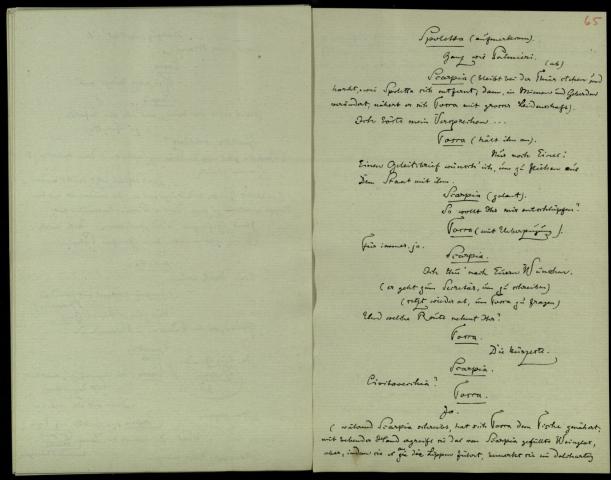 65
Spoletta (aufmerksam).
Ganz wie Palmieri.
(ab)
Scarpia (bleibt bei der Thür stehen und
horcht, wie Spoletta sich entfernt; dann, in Mienen und Geberden
verändert, nähert er sich Tosca mit grosser Leidenschaft).
Ich hielt mein Versprechen...
Tosca (hält ihn an).
Nur noch Eines:
Einen Geleitsbrief wünsch' ich, um zu fliehen aus
dem Staat mit ihm.
Scarpia (galant).
So wollt Ihr mir entschlüpfen?
Tosca (mit Ueberzeugung).
Für immer, ja.
Scarpia.
Ich thu' nach Euern Wünschen.
(er geht zum Secretär, um zu schreiben)
(setzt wieder ab, um Tosca zu fragen)
Und welche Route nehmt Ihr?
Tosca.
Die kürzeste.
Scarpia.
Civitavecchia?
Tosca.
Ja.
(während Scarpia schreibt, hat sich Tosca dem Tische genähert;
mit bebender Hand ergreift sie das von Scarpia gefüllte Weinglas,
aber, indem sie es an die Lippen führt, bemerkt sie ein dolchartig